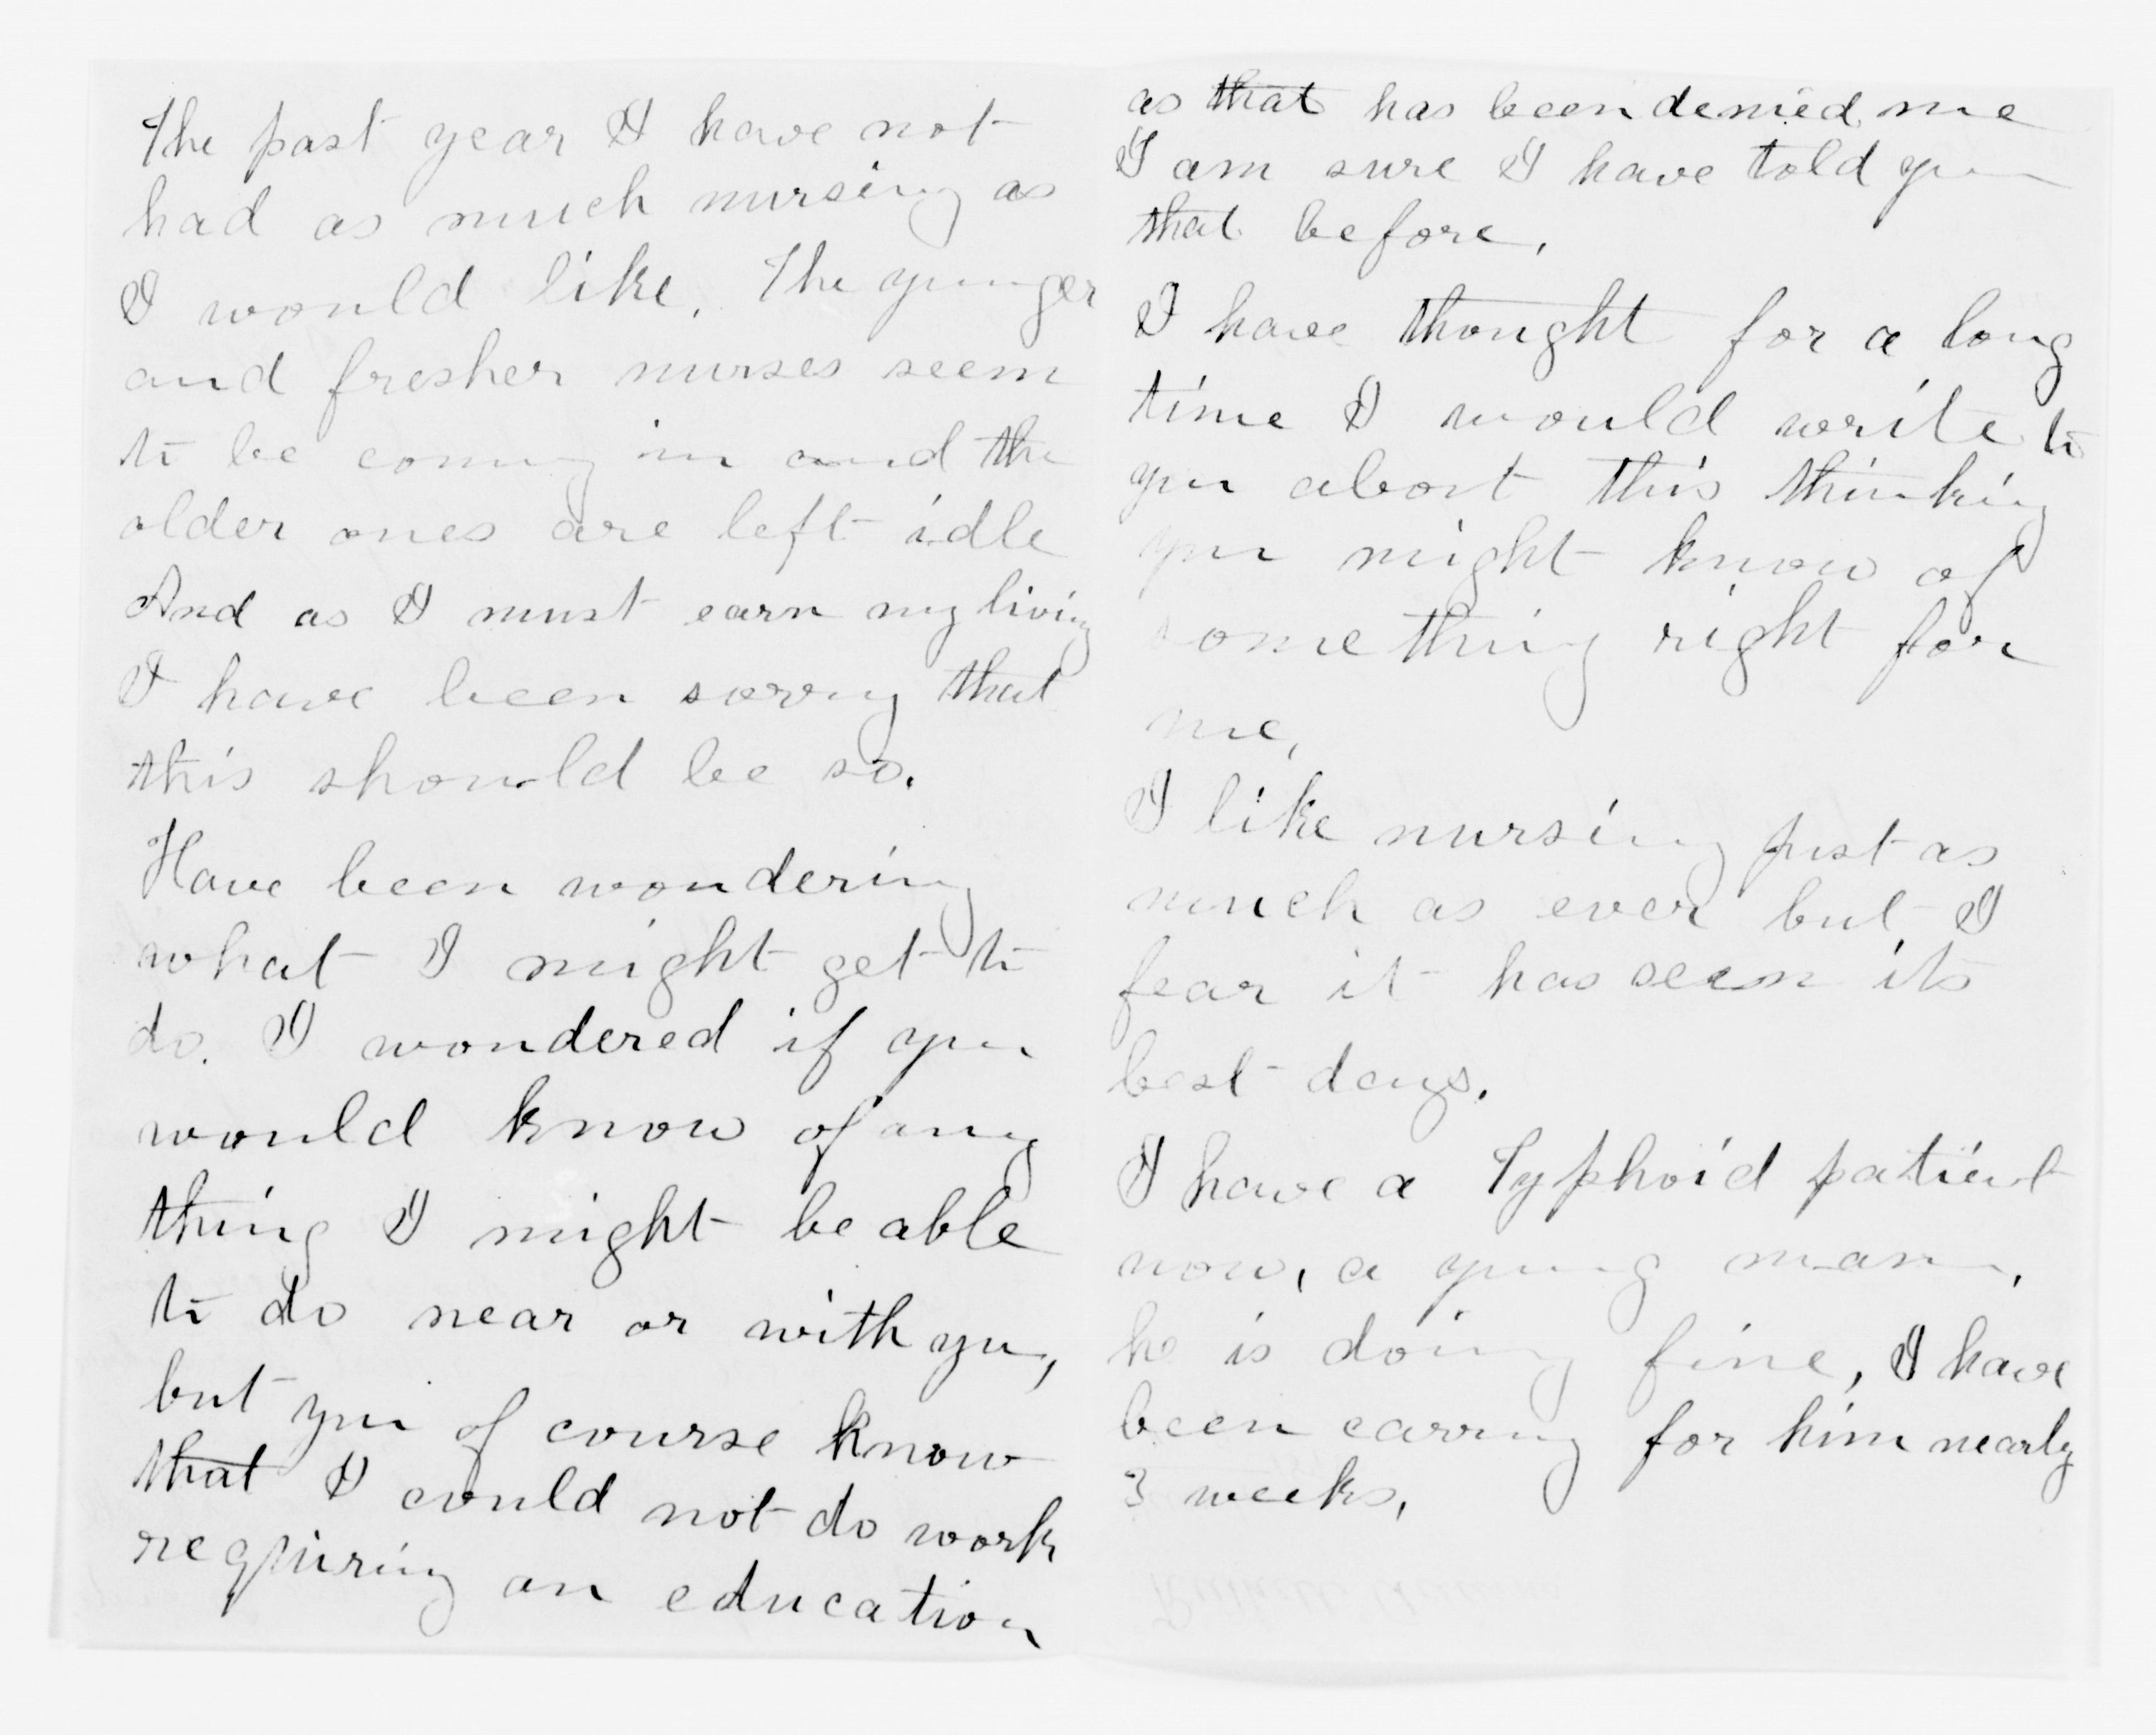 The past year I have not
had as much nursing as
I would like. The younger
and fresher nurses seem
to be coming in and the
older ones are left idle
And as I must earn my living
I have been sorry that
this should be so.
Have been wondering
what I might get to
do. I wondered if you
would know of any
thing I might be able
to do near or with you,
but you of course know
that I could not do work
requiring an education
as that has been denied me
I am sure I have told you
that before.
I have thought for a long
time I would write to
you about this thinking
you might know of
something right for
me,
I like nursing just as
much as ever but I
fear it has seen its
best days.
I have a Typhoid patient
now, a young man,
he is doing fine, I have
been caring for him nearly
3 weeks,